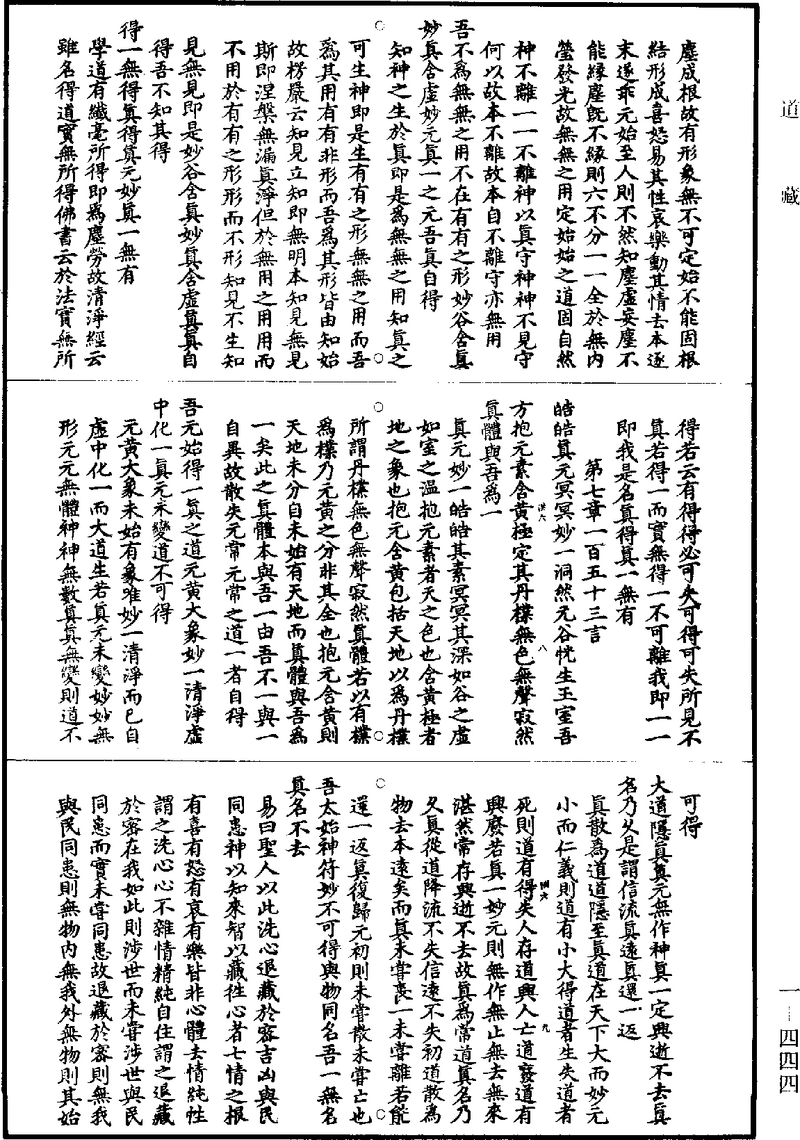 道藏
塵成根故有形象無不可定始不能固根
結形成喜怒易其性哀樂動其情去本逐
末遂乖元始至人則不然知塵虛妄塵不
能緣塵既不緣則六不分一一全於無內
瑩發光故無無之用定始始之道固自然
神不離一一不離神以真守神神不見守
何以故本不離故本自不離守亦無用
吾不為無無之用不在有有之形妙谷含真
妙真含虛妙元真一之元吾真自得
知神之生於真即是為無無之用知真之
可生神即是生有有之形無無之用而吾
為其用有有非形而吾為其形皆由知始
故楞嚴云知見立知即無明本知見無見
斯即涅槃無漏真淨但於無用之用用而
不用於有有之形形而不形知見不生知
見無見即是妙谷含真妙真含虛真真自
得吾不知其得
得一無得真得真元妙真一無有
學道有纖毫所得即為塵勞故清淨經云
雖名得道實無所得佛書云於法實無所
得若云有得得必可失可得可失所見不
真若得一而實無得一不可離我即一一
即我是名真得真一無有
第七章一百五十三言
皓皓真元冥冥妙一洞然元谷恍生玉室吾
方抱元素含黃極定其丹樸無色無聲寂然
真體與吾為一
真元妙一皓皓其素冥冥其深如谷之虛
如室之溫抱元素者天之色也含黃極者
地之象也抱元含黃包括天地以為丹樸
所謂丹樸無色無聲寂然真體若以有樸
為樸乃元黃之分非其全也抱元含黃則
天地未分自未始有天地而真體與吾為
一矣此之真體本與吾一由吾不一與一
自異故散失元常元常之道一者自得
吾元始得一真之道元黃大象妙一清淨虛
中化一真元未變道不可得
元黃大象未始有象唯妙一清淨而已自
虛中化一而大道生若真元未變妙妙無
形元元無體神神無數真真無變則道不
可得
大道隱真真元無作神真一定興逝不去真
名乃久是謂信流真遠真還一返
真散為道道隱至真道在天下大而妙元
小而仁義則道有小大得道者生失道者
死則道有得失人存道興人亡道衰道有
興廢若真一妙元則無作無止無去無來
湛然常存興逝不去故真為常道真名乃
久真從道降流不失信遠不失初道散為
物去本遠矣而真未嘗喪一未嘗離若能
還一返真復歸元初則未嘗散未嘗亡也
吾太始神符妙不可得與物同名吾一無名
真名不去
易曰聖人以此洗心退藏於密吉凶與民
同患神以知來智以藏往心者七情之根
有喜有怒有哀有樂皆非心體去情純性
謂之洗心心不雜情精純自住謂之退藏
於密在我如此則涉世而未嘗涉世與民
同患而實未嘗同患故退藏於密則無我
與民同患則無物內無我外無物則其始
一—四四四